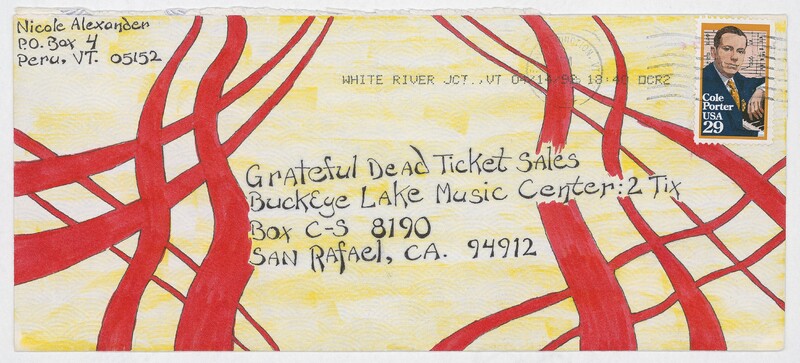 Nicole Alexander
P.O. Box 4
Peru, VT. 05152
WHITE RIVER JCT., VT 04/14/92 18:40 OCR2
Cole
Porter
USA
29
Grateful Dead Ticket Sales
BuckEye Lake Music Center: 2 Tix
Box C-S 8190
SAN Rafael, CA. 94912